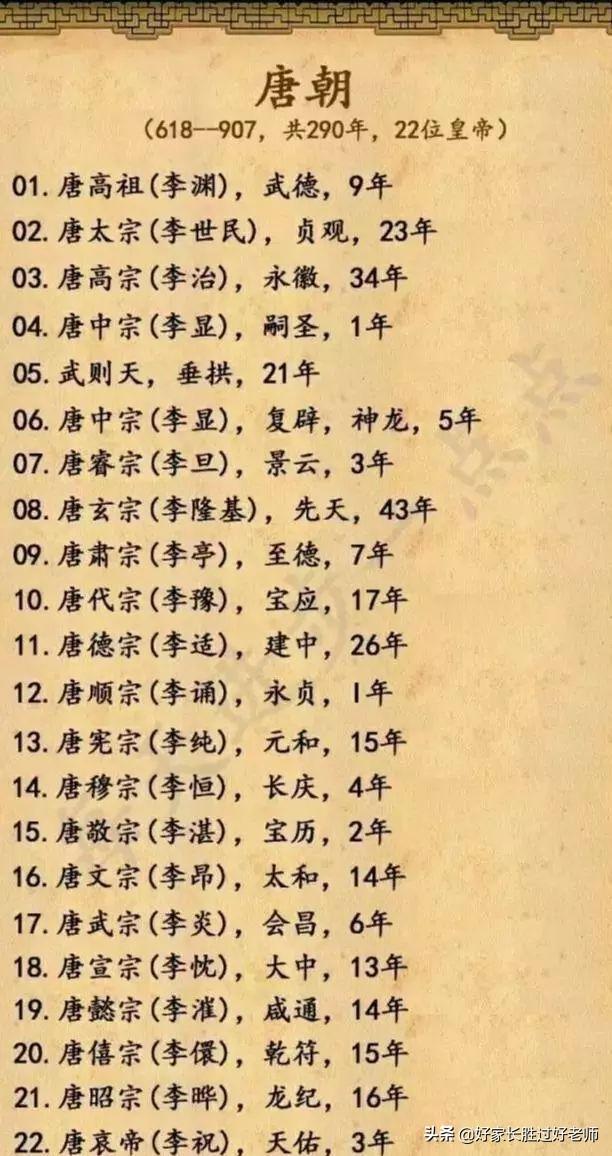 唐朝
(618--907, 共290年, 22位皇帝)
01.唐高祖(李渊), 武德, 9年
02.唐太宗(李世民), 贞观, 23年
03.唐高宗(李治), 永徽, 34年
04.唐中宗(李显), 嗣圣, 1年
05.武则天, 垂拱, 21年
06.唐中宗(李显), 复辟, 神龙, 5年
07.唐睿宗(李旦), 景云, 3年
08.唐玄宗(李隆基), 先天, 43年
09.唐肃宗(李亭), 至德, 7年
10.唐代宗(李豫), 宝应, 17年
11.唐德宗(李适), 建中, 26年
12.唐顺宗(李诵), 永贞, 1年
13.唐宪宗(李纯), 元和, 15年
14.唐穆宗(李恒), 长庆, 4年
15.唐敬宗(李湛), 宝历, 2年
16.唐文宗(李昂), 太和, 14年
17.唐武宗(李炎), 会昌, 6年
18.唐宣宗(李忱), 大中, 13年
19.唐懿宗(李漼), 咸通, 14年
20.唐僖宗(李儇), 乾符, 15年
21.唐昭宗(李晔), 龙纪, 16年
22.唐哀帝(李祝), 天佑, 3年
头条 @好家长胜过好老师